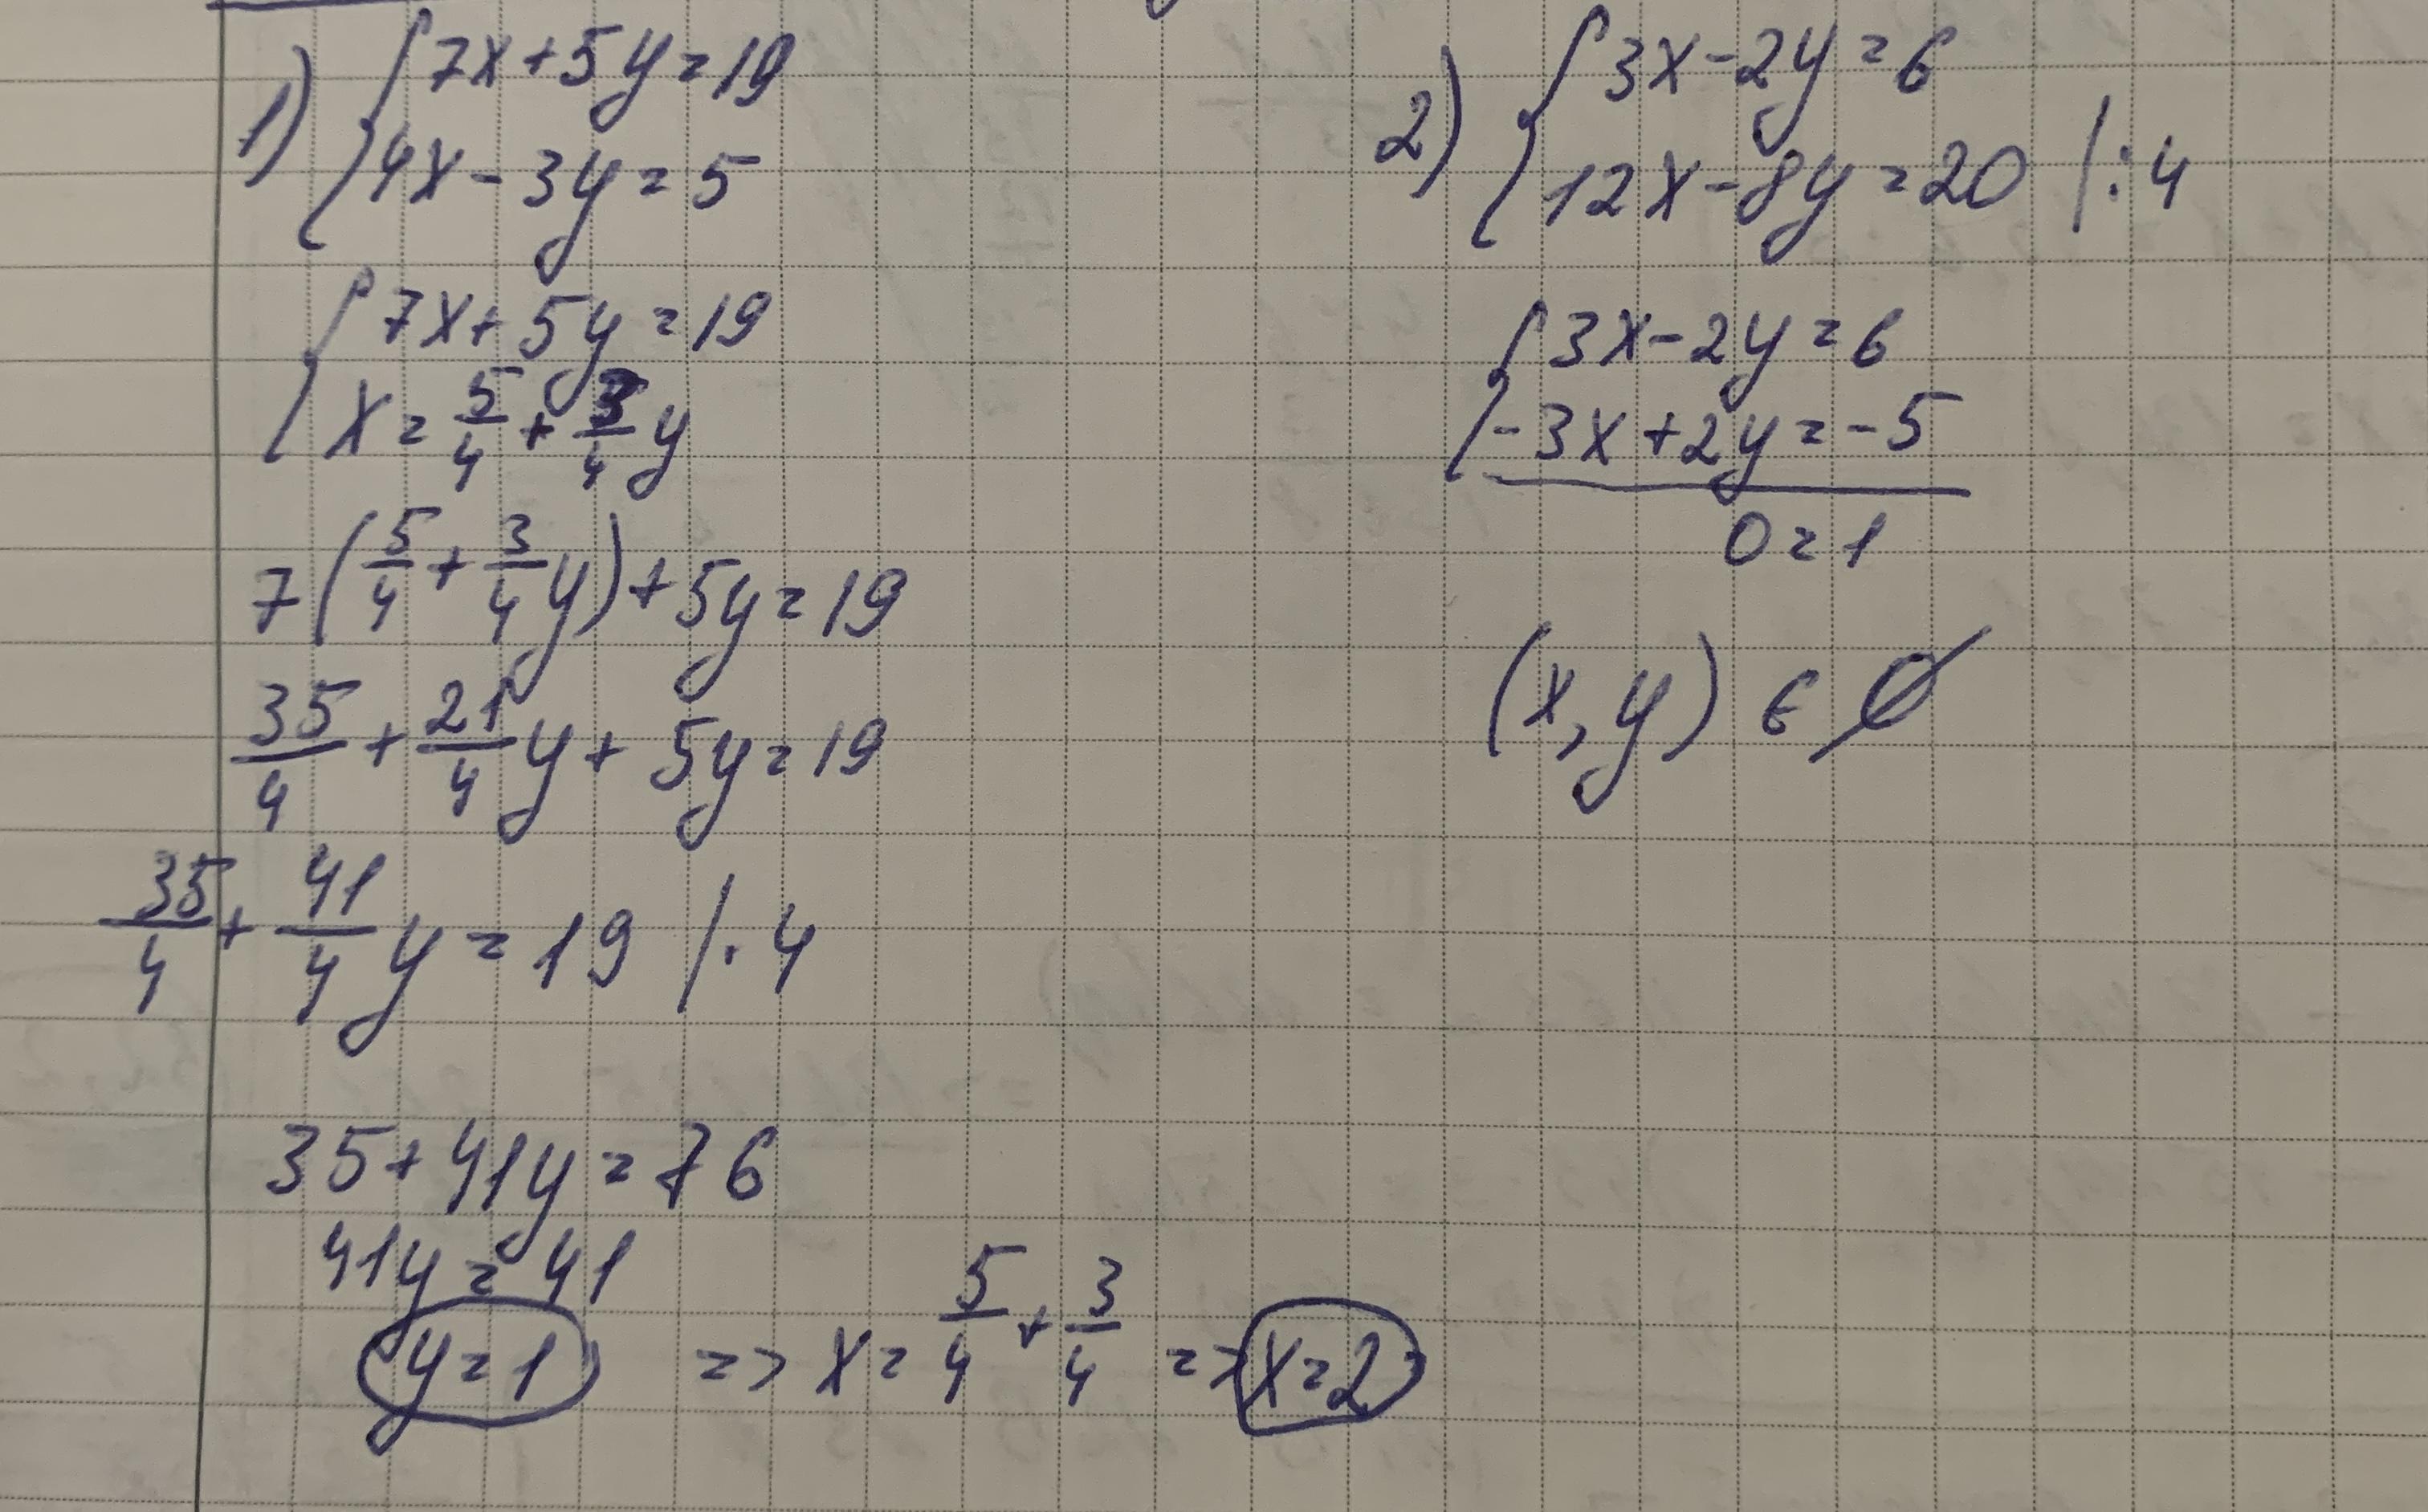 1) { 7x+5y=19
4x-3y=5
{ 7x+5y=19
x=5/4+3/4y
7(5/4+3/4y)+5y=19
35/4+21/4y+5y=19
35/4+41/4y=19 /·4
35+41y=76
41y=41
y=1 => x=5/4+3/4 => x=2
2) { 3x-2y=6
12x-8y=20 /:4
{ 3x-2y=6
-3x+2y=-5
0=1
(x,y) ∈ ∅